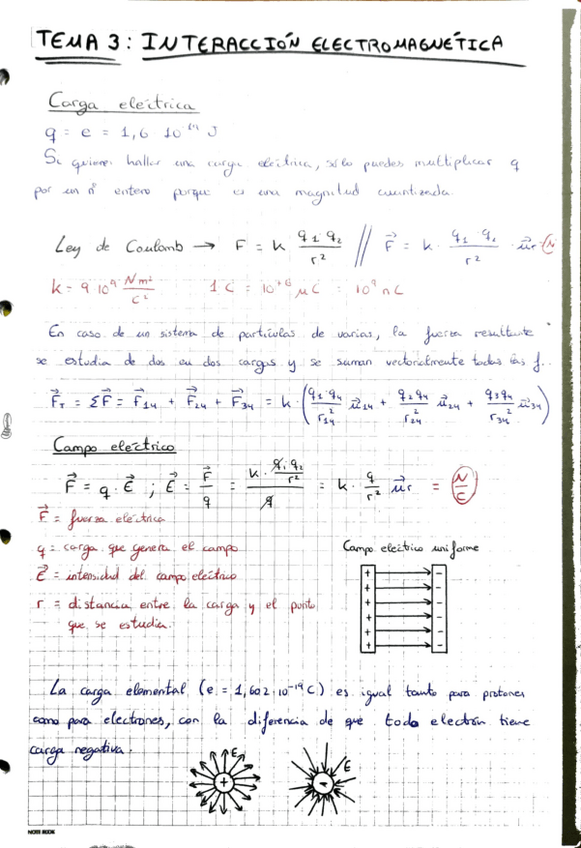 TEMA 3: INTERACCIÓN ELECTROMAGNÉTICA
Carga eléctrica
q = e = 1,6 10⁻¹⁹ J
Si quieres hallar una carga eléctrica, sólo puedes multiplicar q
por un nº entero porque es una magnitud cuantizada.
Ley de Coulomb → F = k q₁·q₂/r² // F⃗ = k · q₁·q₂/r² · u⃗r (N
k = 9 10⁹ Nm²/C² 1 C = 10⁺⁶ μC = 10⁹ nC
En caso de un sistema de partículas de varias, la fuerza resultante
se estudia de dos en dos cargas y se suman vectorialmente todas las f..
F⃗T = ΣF⃗ = F⃗₁₄ + F⃗₂₄ + F⃗₃₄ = k · (q₁·q₄/r₁₄² u⃗₁₄ + q₂q₄/r₂₄² u⃗₂₄ + q₃q₄/r₃₄² u⃗₃₄)
Campo eléctrico
F⃗ = q · E⃗ ; E⃗ = F⃗/q = (k · q₁·q₂/r²)/q = k · q/r² u⃗r = (N/C)
F⃗ = fuerza eléctrica
q = carga que genera el campo
E⃗ = intensidad del campo eléctrico
r = distancia entre la carga y el punto
que se estudia.
Campo eléctrico uniforme
+ -
+ -
+ -
+ -
+ -
+ -
La carga elemental (e = 1,602·10⁻¹⁹ C) es igual tanto para protones
como para electrones, con la diferencia de que todo electrón tiene
carga negativa.
E
+
E
-
NOTE BOOK